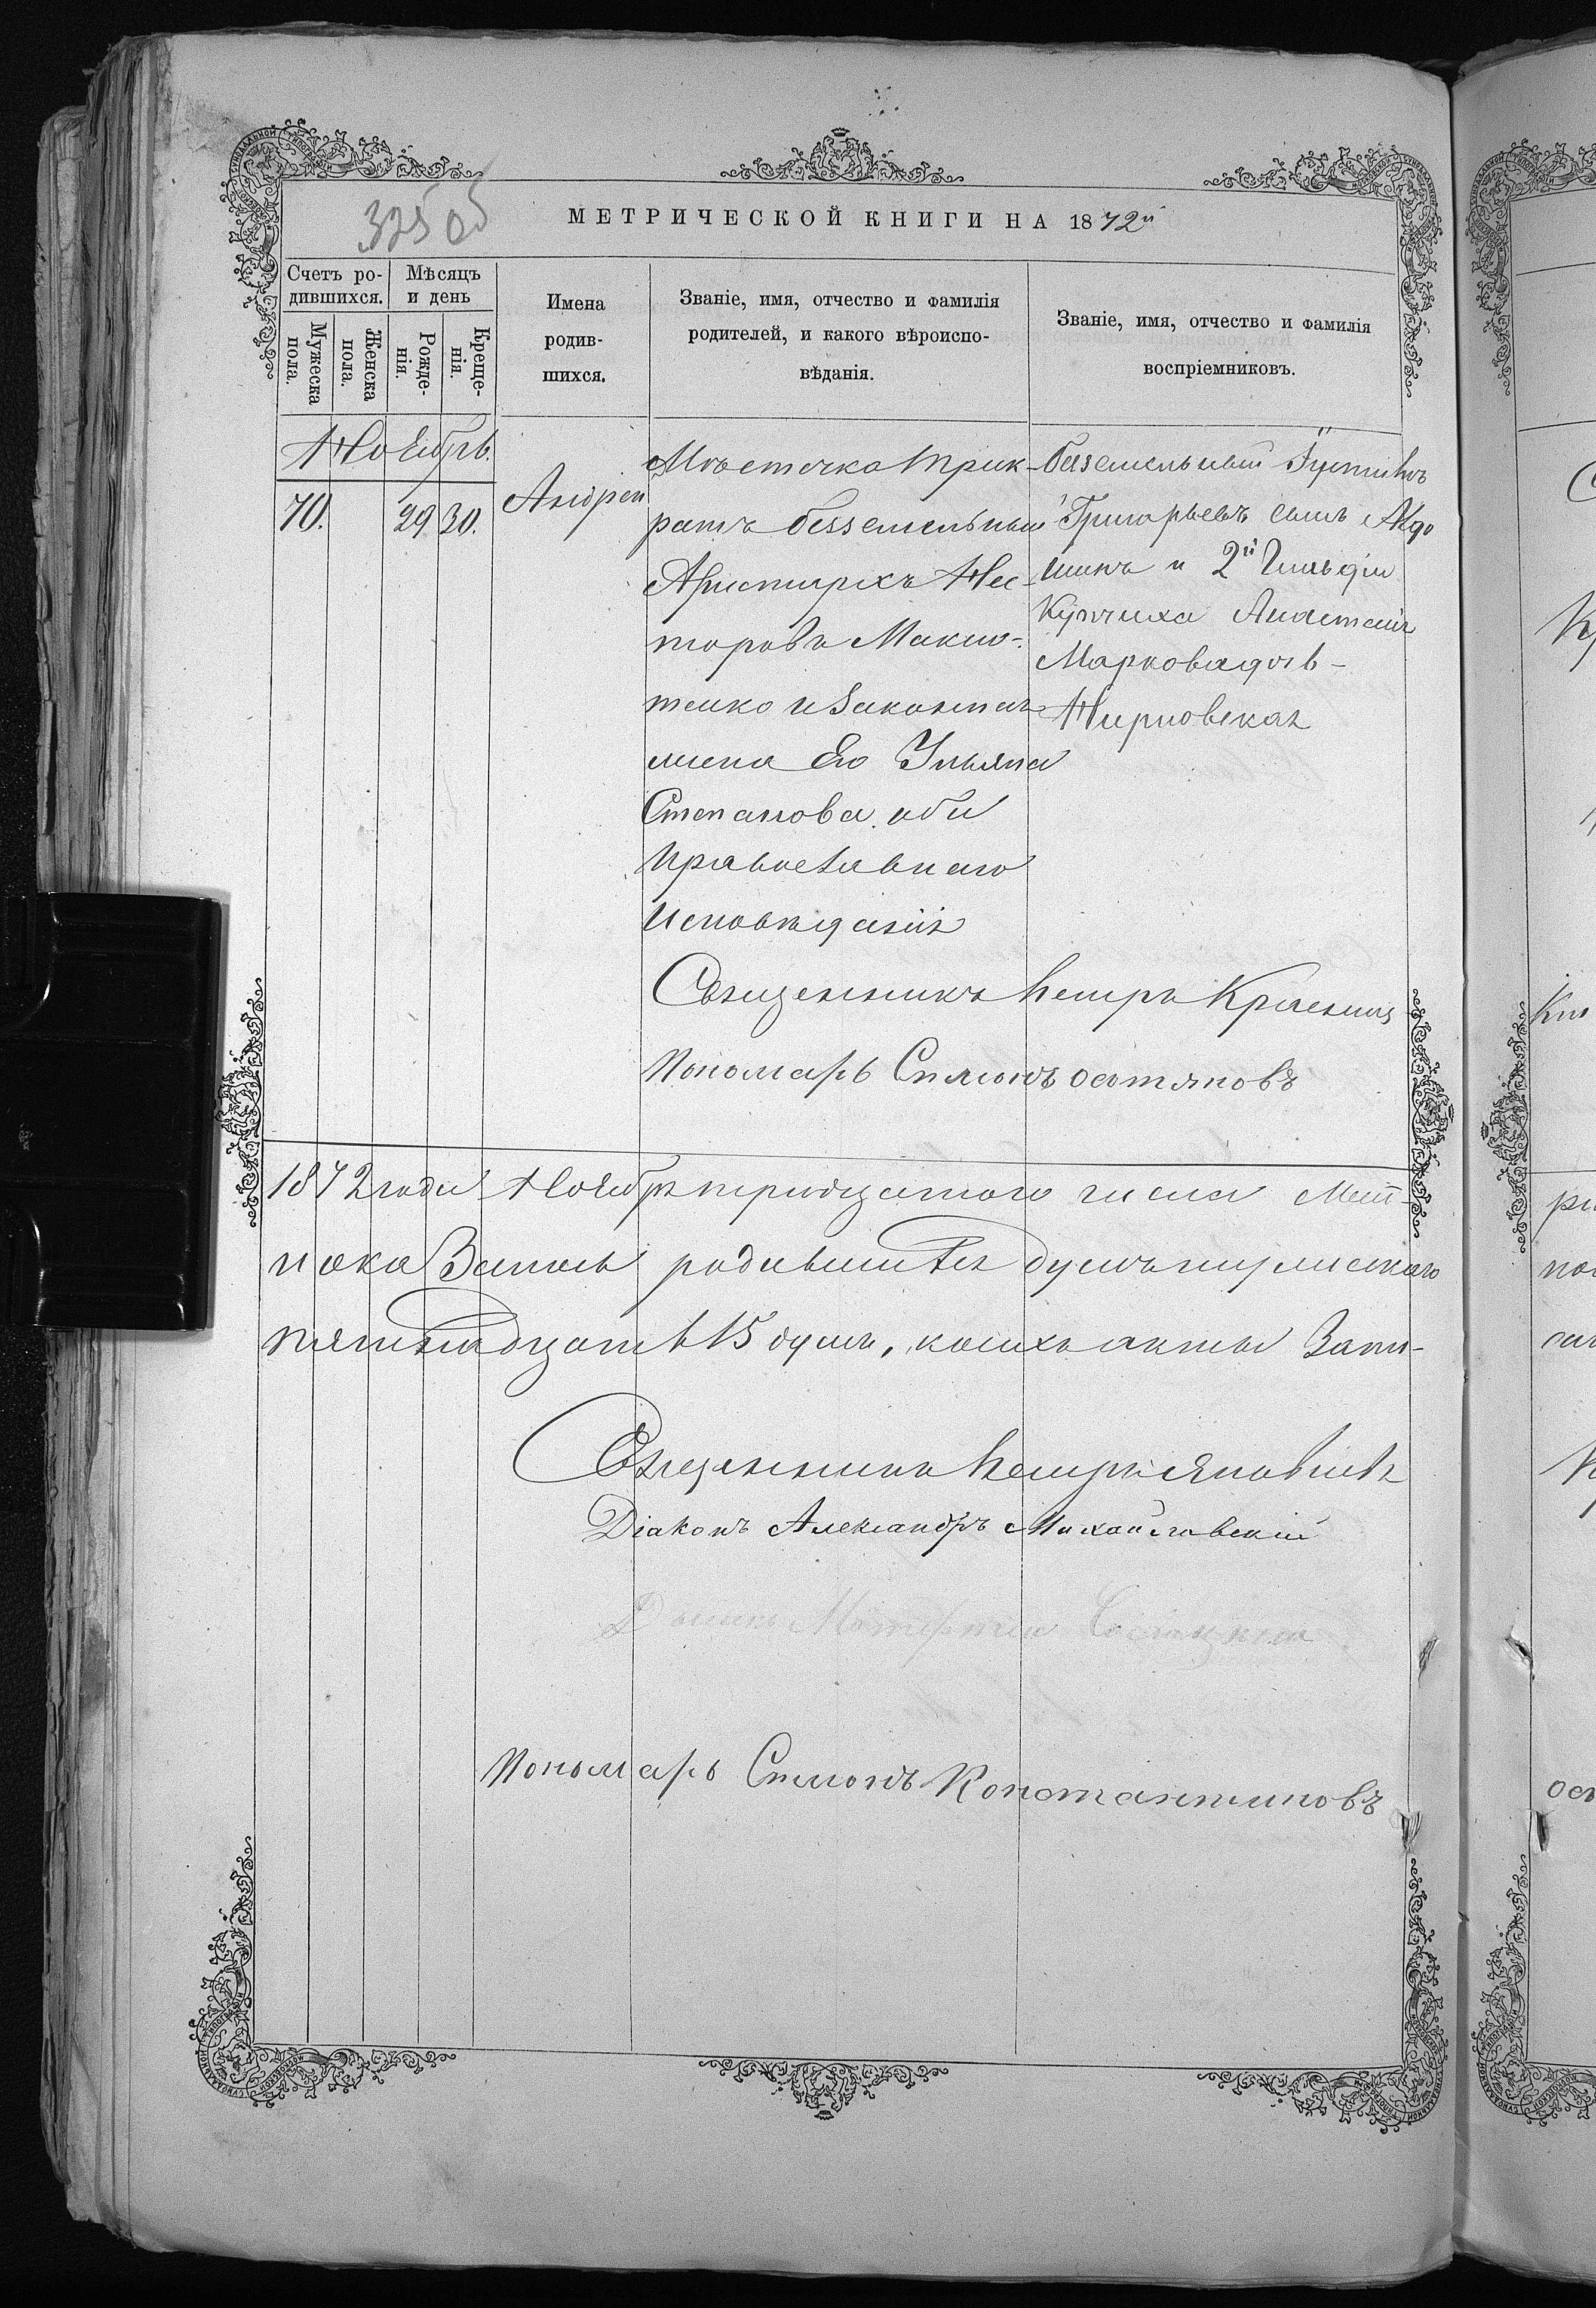 325 об
МЕТРИЧЕСКОЙ КНИГИ НА 1872й
Счетъ ро-
дившихся.
Мѣсяцъ
и день
Мужеска
пола.
Женска
пола.
Рожде-
нія.
Креще-
нія.
Имена
родив-
шихся.
Званіе, имя, отчество и фамилія
родителей, и какого вѣроиспо-
вѣданія.
Званіе, имя, отчество и фамилія
воспріемниковъ.
Ноябрь.
70.
29
30.
Андрей
Мѣстечка Трик-
ратъ безземельный
Аристархъ Нес-
торовъ Макию-
тенко и законная
жена Его Ульяна
Степанова. оби
православнаго
Исповѣданія
безземельный Іустинъ
Григорьевъ сынъ
и 2й Гильдіи
Купчиха Анастасія
Маркова дочь-
Жирновская
Священникъ Петръ
Пономарь Симонъ
1872 года Ноября тридцатого числа
родившихся душъ мужескаго
пятнадцать 15 душъ, коихъ акты Запи-
Священникъ Петръ Яновичъ
Діаконъ Александръ Михайловскій
Пономарь Симонъ Константиновъ